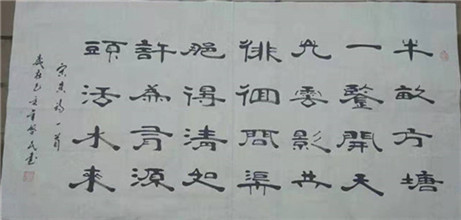 半畝方塘
一鑒開天
光雲影共
徘徊問渠
那得清如
許為有源
頭活水來
一首
歲在己亥年